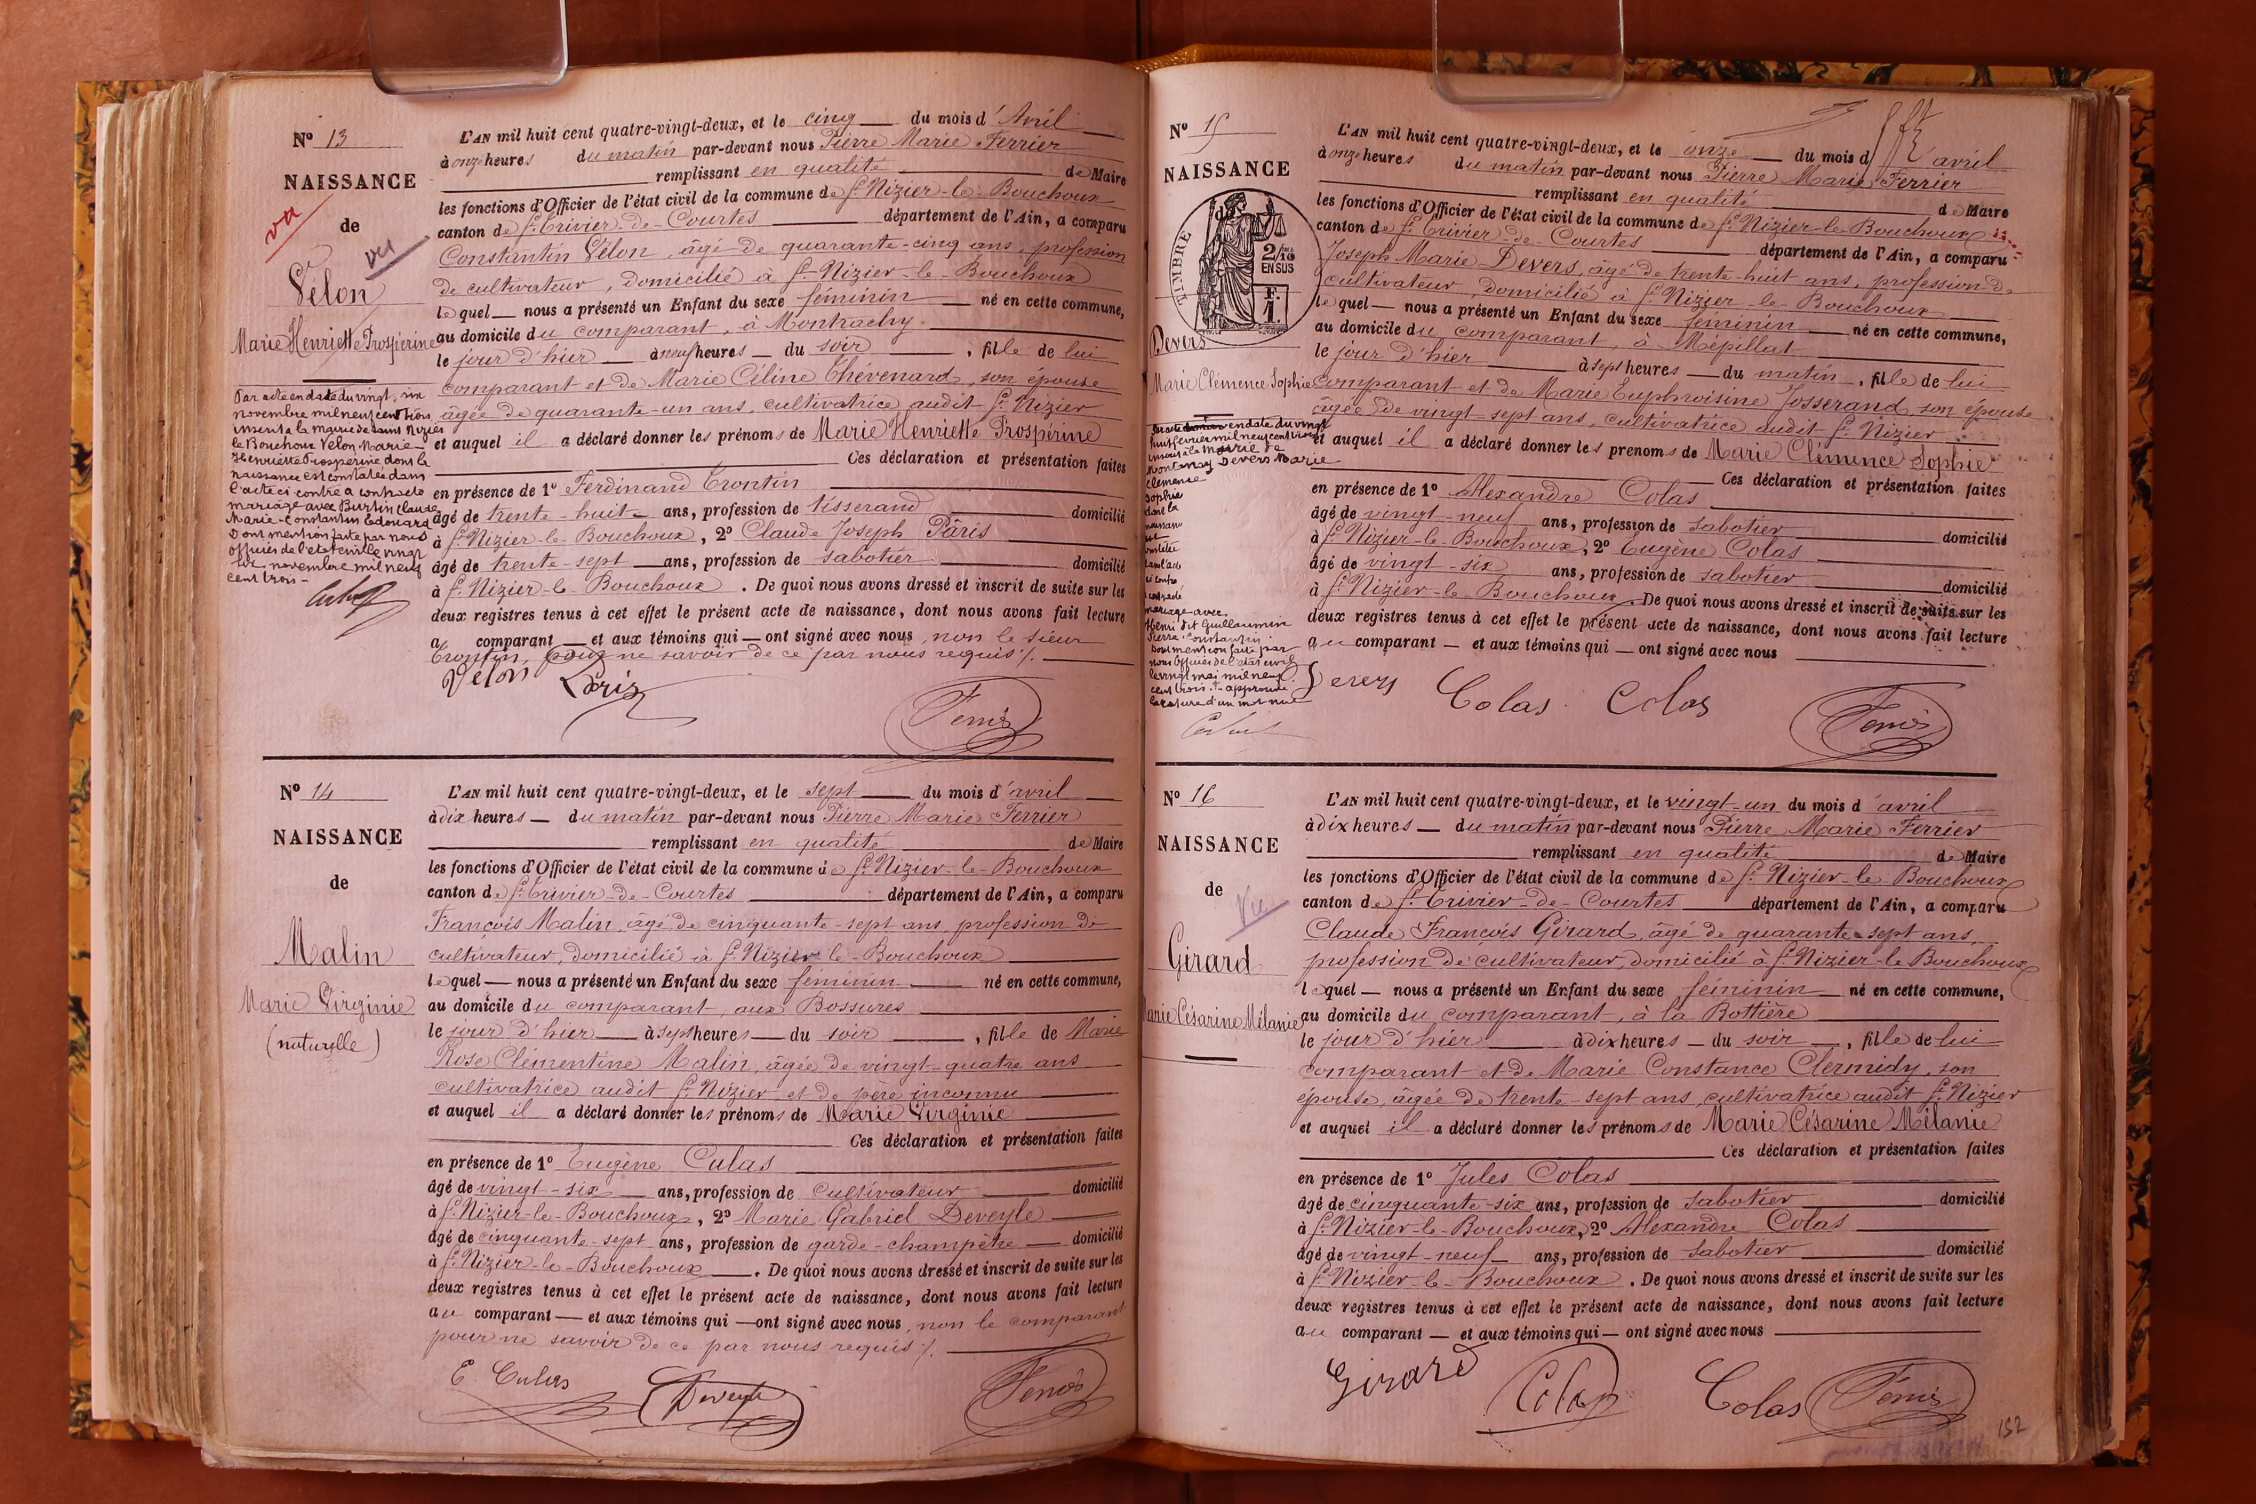 Nº 13
NAISSANCE
de
vu
vu
Vélon
Marie Henriette Prospérine
Par acte en date du vingt six
novembre mil neuf cent trois
inscrit a la mairie de saint Nizier
le Bouchoux Velon Marie
Henriette Prosperine dont la
naissance est constatée dans
l'acte ci contre a contracté
mariage avec Burtin Claude
Marie Constantin Edouard
Dont mention faite par nous
officier de l'etat civil le vingt
six novembre mil neuf
cent trois -
L'AN mil huit cent quatre-vingt-deux, et le cinq du mois d'Avril
à onze heures du matin par-devant nous Pierre Marie Ferrier
remplissant en qualité de Maire
les fonctions d'Officier de l'état civil de la commune de St Nizier-le-Bouchoux
canton de St Trivier-de-Courtes département de l'Ain, a comparu
Constantin Vélon, âgé de quarante-cinq ans, profession
de cultivateur, domicilié à St Nizier-le-Bouchoux
lequel nous a présenté un Enfant du sexe féminin né en cette commune,
au domicile du comparant, à Montrachy
le jour d'hier à neuf heures du soir, fille de lui
comparant et de Marie Céline Thévenard, son épouse
âgée de quarante-un ans, cultivatrice audit St Nizier
et auquel il a déclaré donner les prénoms de Marie Henriette Prospérine
Ces déclaration et présentation faites
en présence de 1º Ferdinand Trontin
âgé de trente-huit ans, profession de tisserand domicilié
à St Nizier-le-Bouchoux, 2º Claude Joseph Pâris
âgé de trente-sept ans, profession de sabotier domicilié
à St Nizier-le-Bouchoux. De quoi nous avons dressé et inscrit de suite sur les
deux registres tenus à cet effet le présent acte de naissance, dont nous avons fait lecture
au comparant et aux témoins qui ont signé avec nous, non le sieur
Trontin, pour ne savoir de ce par nous requis /.
Velon Pâris Ferrier
Nº 14
NAISSANCE
de
Malin
Marie Virginie
(naturelle)
L'AN mil huit cent quatre-vingt-deux, et le sept du mois d'avril
à dix heures du matin par-devant nous Pierre Marie Ferrier
remplissant en qualité de Maire
les fonctions d'Officier de l'état civil de la commune de St Nizier-le-Bouchoux
canton de St Trivier-de-Courtes département de l'Ain, a comparu
François Malin, âgé de cinquante-sept ans, profession de
cultivateur, domicilié à St Nizier-le-Bouchoux
lequel nous a présenté un Enfant du sexe féminin né en cette commune,
au domicile du comparant, aux Bossures
le jour d'hier à sept heures du soir, fille de Marie
Rose Clémentine Malin, âgée de vingt-quatre ans
cultivatrice audit St Nizier et de père inconnu
et auquel il a déclaré donner les prénoms de Marie Virginie
Ces déclaration et présentation faites
en présence de 1º Eugène Culas
âgé de vingt-six ans, profession de cultivateur domicilié
à St Nizier-le-Bouchoux, 2º Marie Gabriel Deveyle
âgé de cinquante-sept ans, profession de garde-champêtre domicilié
à St Nizier-le-Bouchoux. De quoi nous avons dressé et inscrit de suite sur les
deux registres tenus à cet effet le présent acte de naissance, dont nous avons fait lecture
au comparant et aux témoins qui ont signé avec nous, non le comparant
pour ne savoir de ce par nous requis /.
E Culas Deveyle Ferrier
Nº 15
NAISSANCE
de
TIMBRE
2/10
EN SUS
F.
1.
Devers
Marie Clémence Sophie
en date du vingt
huit février mil neuf cent trois
inscrit a la mairie de
Montanay Devers Marie
Clemence
Sophie
dont la
naissance
est
constatée
dans l'acte
ci contre
a contracté
mariage avec
Henri dit Guillaumin
Pierre Constantin.
Dont mention faite par
nous officier de l'etat civil
le vingt mai mil neuf
cent trois approuvé
la rature d'un mot nul
L'AN mil huit cent quatre-vingt-deux, et le onze du mois d'avril
à onze heures du matin par-devant nous Pierre Marie Ferrier
remplissant en qualité de Maire
les fonctions d'Officier de l'état civil de la commune de St Nizier-le-Bouchoux
canton de St Trivier-de-Courtes département de l'Ain, a comparu
Joseph Marie Devers, âgé de trente-huit ans, profession de
cultivateur, domicilié à St Nizier-le-Bouchoux
lequel nous a présenté un Enfant du sexe féminin né en cette commune,
au domicile du comparant, à Mépillat
le jour d'hier à sept heures du matin, fille de lui
comparant et de Marie Euphroisine Josserand, son épouse
âgée de vingt-sept ans, cultivatrice audit St Nizier
et auquel il a déclaré donner les prenoms de Marie Clémence Sophie
Ces déclaration et présentation faites
en présence de 1º Alexandre Colas
âgé de vingt-neuf ans, profession de sabotier domicilié
à St Nizier-le-Bouchoux, 2º Eugène Colas
âgé de vingt-six ans, profession de sabotier domicilié
à St Nizier-le-Bouchoux. De quoi nous avons dressé et inscrit de suite sur les
deux registres tenus à cet effet le présent acte de naissance, dont nous avons fait lecture
au comparant et aux témoins qui ont signé avec nous
Devers Colas Colas Ferrier
Nº 16
NAISSANCE
de
Vu
Girard
Marie Césarine Mélanie
L'AN mil huit cent quatre-vingt-deux, et le vingt-un du mois d'avril
à dix heures du matin par-devant nous Pierre Marie Ferrier
remplissant en qualité de Maire
les fonctions d'Officier de l'état civil de la commune de St Nizier-le-Bouchoux
canton de St Trivier-de-Courtes département de l'Ain, a comparu
Claude François Girard, âgé de quarante-sept ans,
profession de cultivateur, domicilié à St Nizier-le-Bouchoux
lequel nous a présenté un Enfant du sexe féminin né en cette commune,
au domicile du comparant, à la Bottière
le jour d'hier à dix heures du soir, fille de lui
comparant et de Marie Constance Clermidy, son
épouse, âgée de trente-sept ans, cultivatrice audit St Nizier
et auquel il a déclaré donner les prénoms de Marie Césarine Mélanie
Ces déclaration et présentation faites
en présence de 1º Jules Colas
âgé de cinquante-six ans, profession de sabotier domicilié
à St Nizier-le-Bouchoux, 2º Alexandre Colas
âgé de vingt-neuf ans, profession de sabotier domicilié
à St Nizier-le-Bouchoux. De quoi nous avons dressé et inscrit de suite sur les
deux registres tenus à cet effet le présent acte de naissance, dont nous avons fait lecture
au comparant et aux témoins qui ont signé avec nous
Girard Colas Colas Ferrier
152